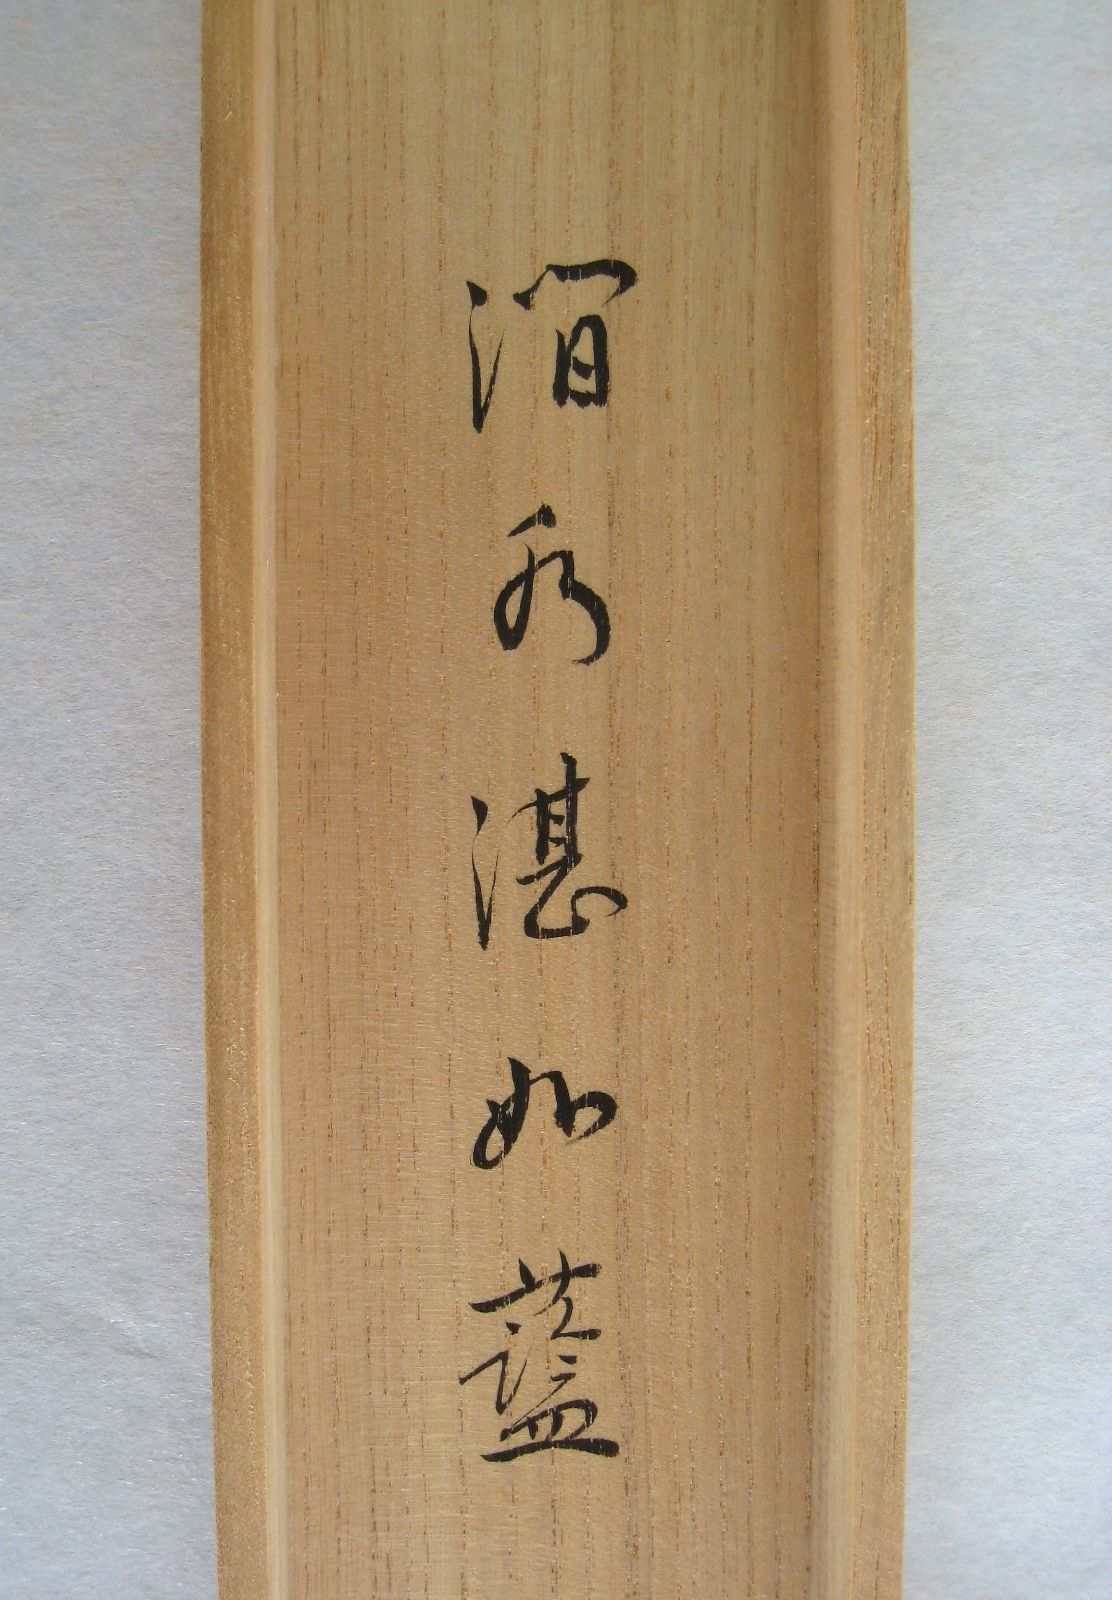 澗水湛如藍